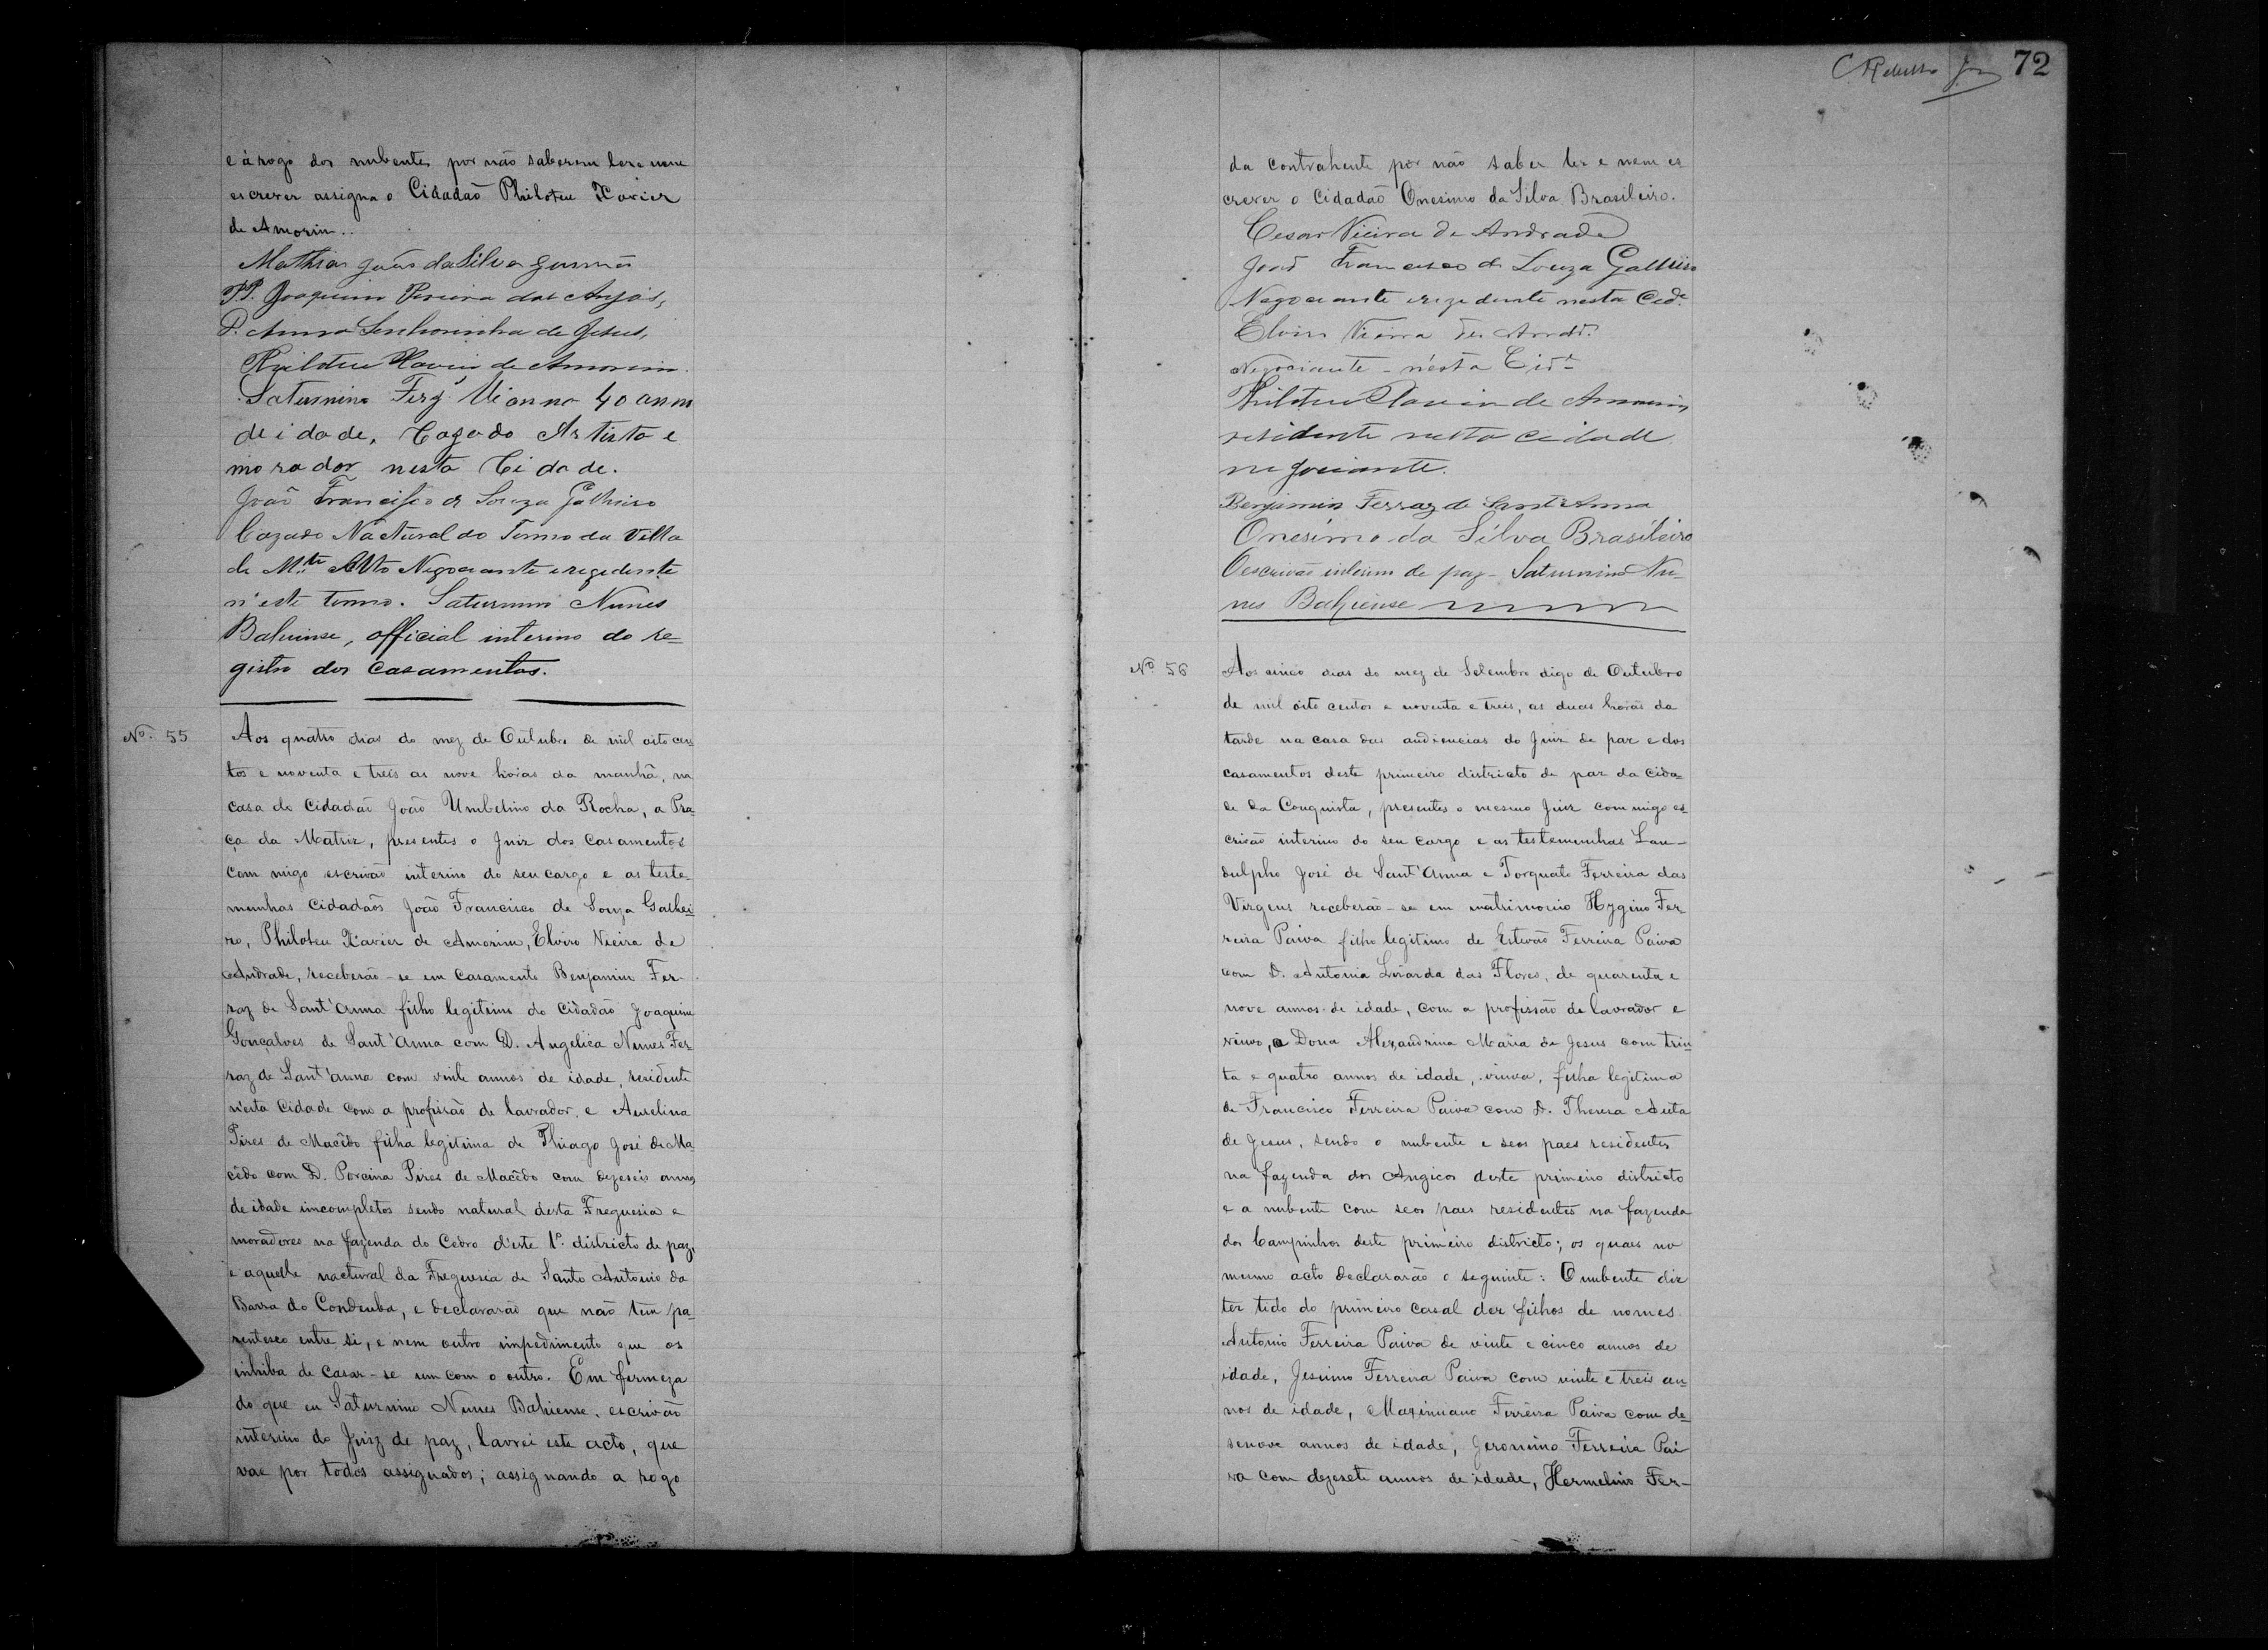 e á rogo dos nubentes por não saberem ler e nem
escrever assigna o Cidadão Philoteu Xavier
de Amorim..
Mathias João da Silva Gusmão
PP. Joaquim Pereira dos Anjos,
P. Anna Senhorinha de Jesus,
Philoteu Xavier de Amorim.
Saturnino Ferz Vianna 40 annos
de idade, Cazado Artista e
morador nesta Cidade.
João Francisco de Souza Galheiro
Cazado Nactural do Termo da Villa
de Mte Alto Negociante e rezedente
n'este termo. Saturnino Nunes
Bahiense, official interino do re-
gistro dos casamentos.
No. 55
Aos quatro dias do mez de Outubro de mil oito cen-
tos e noventa e treis as nove horas da manhã, na
casa do Cidadão João Umbelino da Rocha, a Pra-
ça da Matriz, presentes o Juiz dos Casamentos
commigo escrivão interino do seu cargo e as teste-
munhas Cidadãos João Francisco de Souza Galhei-
ro, Philoteu Xavier de Amorim, Elviro Vieira de
Andrade, receberão-se em casamento Benjamim Fer-
raz de Sant'Anna filho legitimo do Cidadão Joaquim
Gonçalves de Sant'Anna com D. Angelica Nunes Fer-
raz de Sant'anna com vinte annos de idade, residente
n'esta Cidade com a profissão de lavrador, e Aurelina
Pires de Macêdo filha legitima de Thiago José de Ma-
cêdo com D. Porcina Pires de Macêdo com dezeseis annos
de idade imcompletos sendo natural desta Freguesia e
moradores na fazenda do Cedro d'este 1º. districto de paz,
e aquelle nactural da Freguesia de Santo Antonio da
Barra do Condeuba, e declararão que não tem pa-
rentesco entre si, e nem outro impedimento que os
inhiba de casar-se um com o outro. Em firmeza
do que eu Saturnino Nunes Bahiense, escrivão
interino do Juiz de paz, lavrei este acto, que
vae por todos assignados; assignando a rogo
72
da contrahente por não saber ler e nem es
crever o Cidadão Onesimo da Silva Brasileiro.
Cesar Vieira de Andrade
João Francisco de Souza Galheiro
Negociante e rezedente nesta Cide
Elviro Vieira de Andre
Negociante - nésta Cide
Philoteu Xavier de Amorim
residente nesta cidade
negociante.
Benjamin Ferraz de Sant'Anna
Onésimo da Silva Brasileiro
O escrivão interino de paz - Saturnino Nu-
nes Bahiense
No. 56
Aos cinco dias do mez de Setembro digo de Outubro
de mil oito centos e noventa e treis, as duas horas da
tarde na casa das audiencias do Juiz de paz e dos
casamentos deste primeiro districto de paz da Cida-
de da Conquista, presentes o mesmo Juiz commigo es-
crivão interino do seu cargo e as testemunhas Lau-
dulpho José de Sant'Anna e Torquato Ferreira das
Virgens receberão-se em matrimonio Hygino Fer-
reira Paiva filho legitimo de Estevão Ferreira Paiva
com D. Antonia das Flores, de quarenta e
nove annos de idade, com a profissão de lavrador e
viuvo, e Dona Alexandrina Maria de Jesus com trin-
ta e quatro annos de idade, viuva, filha legitima
de Francisco Ferreira Paiva com D. Theresa Auta
de Jesus, sendo o nubente e seos paes residentes
na fazenda dos Angicos deste primeiro districto
e a nubente com seos paes residentes na fazenda
dos Campinhos deste primeiro districto; os quaes no
mesmo acto declararão o seguinte: O nubente diz
ter tido do primeiro casal dez filhos de nomes
Antonio Ferreira Paiva de vinte e cinco annos de
idade, Jesuino Ferreira Paiva com vinte e treis an-
nos de idade, Maximiano Ferreira Paiva com de-
senove annos de idade, Jeronimo Ferreira Pai
va com dezesete annos de idade, Hermelino Fer-